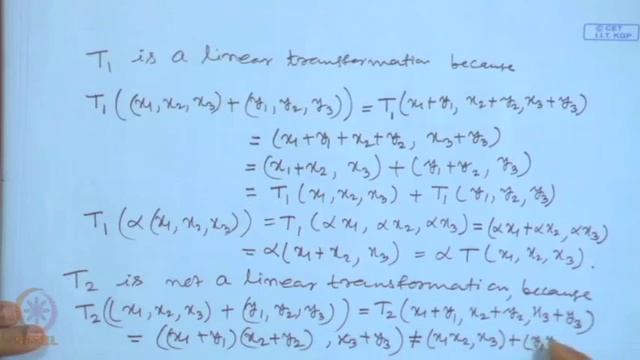 © CET
I.I.T. KGP
T₁ is a linear transformation because
T₁((x₁, x₂, x₃) + (y₁, y₂, y₃)) = T₁(x₁+y₁, x₂+y₂, x₃+y₃)
= (x₁+y₁+x₂+y₂, x₃+y₃)
= (x₁+x₂, x₃) + (y₁+y₂, y₃)
= T₁(x₁, x₂, x₃) + T₁(y₁, y₂, y₃)
T₁(α(x₁, x₂, x₃)) = T₁(αx₁, αx₂, αx₃) = (αx₁+αx₂, αx₃)
= α(x₁+x₂, x₃) = αT(x₁, x₂, x₃).
T₂ is not a linear transformation, because
T₂((x₁, x₂, x₃) + (y₁, y₂, y₃)) = T₂(x₁+y₁, x₂+y₂, x₃+y₃)
= ((x₁+y₁)(x₂+y₂), x₃+y₃) ≠ (x₁x₂, x₃) + (y₁